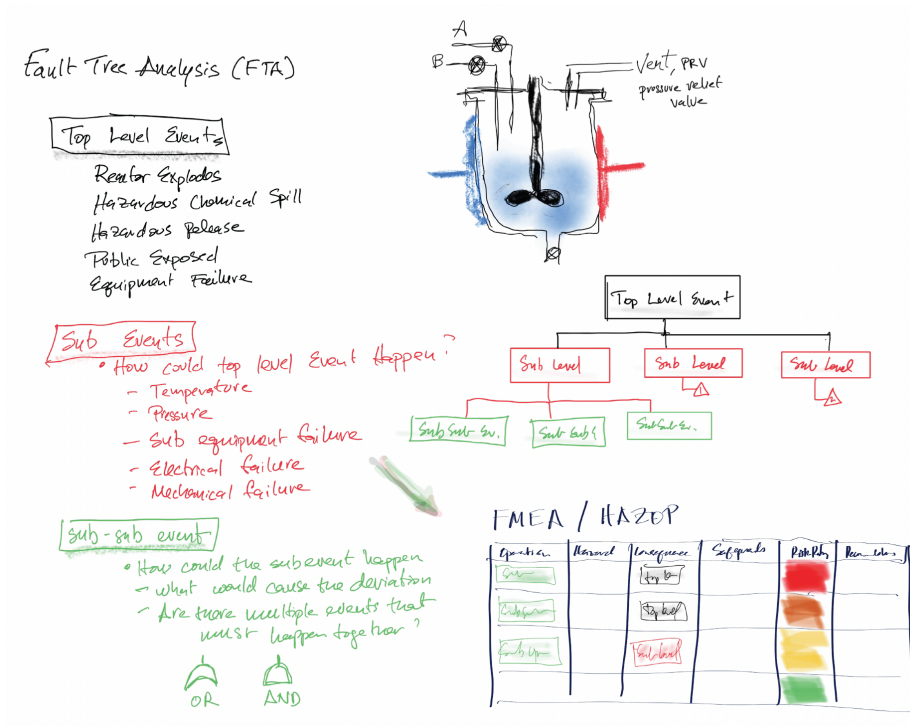 Fault Tree Analysis (FTA)
Top Level Events
Reactor Explodes
Hazardous Chemical Spill
Hazardous Release
Public Exposed
Equipment Failure
A
B
Vent, PRV
pressure relief
valve
Sub Events
• How could top level Event Happen?
- Temperature
- Pressure
- Sub equipment failure
- Electrical failure
- Mechanical failure
Sub-sub event
• How could the subevent happen
- What would cause the deviation
- Are there multiple events that
must happen together?
OR AND
Top Level Event
Sub Level Sub Level Sub Level
1 2
Sub Sub Ev. Sub Sub E SubSub Ev.
FMEA / HAZOP
Operation Hazard Consequence Safeguards
Top level
Sub level